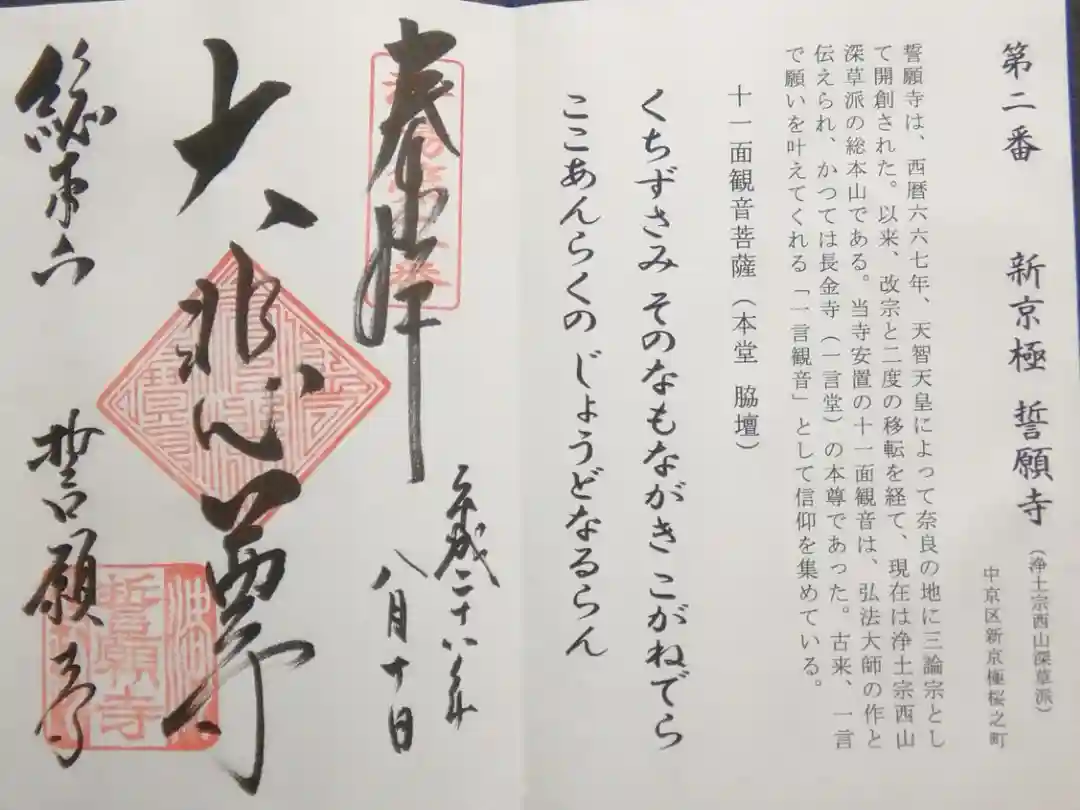 第二番 新京極 誓願寺（浄土宗西山深草派）
中京区新京極桜之町
誓願寺は、西暦六六七年、天智天皇によって奈良の地に三論宗とし
て開創された。以来、改宗と二度の移転を経て、現在は浄土宗西山
深草派の総本山である。当寺安置の十一面観音は、弘法大師の作と
伝えられ、かつては長金寺（一言堂）の本尊であった。古来、一言
で願いを叶えてくれる「一言観音」として信仰を集めている。
十一面観音菩薩（本堂 脇壇）
くちずさみ そのなもながき こがねでら
ここあんらくの じょうどなるらん
奉拝
平成二十六年
八月十日
大悲尊
総本山
誓願寺
誓願寺